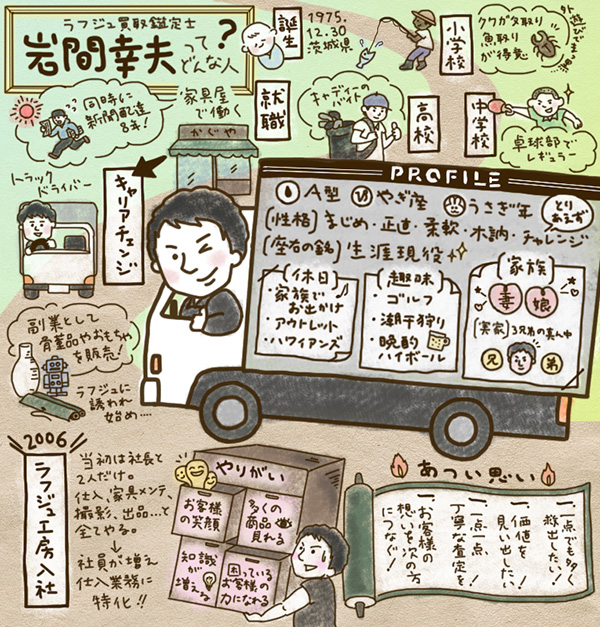 ラフジュ買取鑑定士
岩間幸夫って
どんな人?
誕生
1975.
12.30
茨城県
小学校
クワガタ取り
魚取り
が得意
外遊びでまっ黒…
中学校
卓球部で
レギュラー
高校
キャディーの
バイト
就職
家具屋
で働く
かぐや
同時に
新聞配達
8年!
キャリアチェンジ
トラック
ドライバー
副業として
骨董品やおもちゃ
を販売!
ラフジュに
誘われ
始め….
PROFILE
A型 やぎ座 うさぎ年
[性格]まじめ・正直・柔軟・木訥・チャレンジ
とり
あえず
[座右の銘]生涯現役
[休日]
・家族で
お出かけ
・アウトレット
・ハワイアンズ
[趣味]
・ゴルフ
・潮干狩り
・晩酌
ハイボール
[家族]
妻 娘
[実家]3兄弟の真ん中
兄 弟
2006
ラフジュ工房入社
当初は社長と
2人だけ。
仕入、家具メンテ、
撮影、出品…と
全てやる。
社員が増え
仕入業務に
特化!!
やりがい
お客様
の笑顔
多くの
商品
見れる
知識
が
増える
困っている
お客様の
力になれる
あつい思い
一、一点でも多く
救出したい!
一、価値を
見い出したい!
一、一点一点
丁寧な査定を!
一、お客様の
想いを次の方
につなぐ!